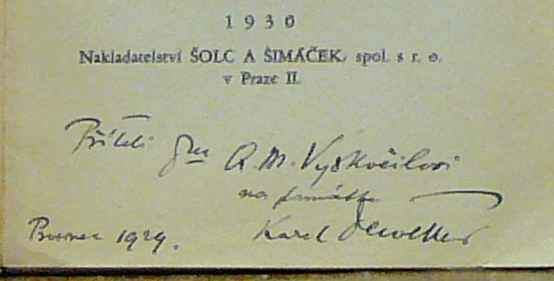 1930
Nakladatelství ŠOLC A ŠIMÁČEK, spol. s r. o.
v Praze II.
Příteli A. M. Vyskočilovi
na památku
1929. Karel